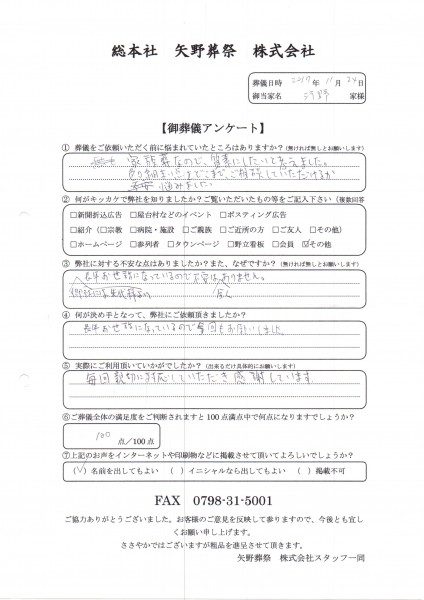 総本社 矢野葬祭 株式会社
葬儀日時 2017年 11月 24日
御当家名 河野 家様
【御葬儀アンケート】
① 葬儀をご依頼いただく前に悩まれていたところはありますか？(無ければ無しとお願いします)
家族葬なので、質素にしたいと考えました。
どこまで、ご相談していただけるか
悩みました。
② 何がキッカケで弊社を知りましたか？ご覧いただいたもの等をご記入下さい（複数回答
□新聞折込広告 □屋台村などのイベント □ポスティング広告
□紹介（□宗教 □病院・施設 □ご親族 □ご近所の方 □ご友人 □その他）
□ホームページ □参列者 □タウンページ □野立看板 □会員 ☑その他
③ 弊社に対する不安な点はありましたか？また、なぜですか？(無ければ無しとお願いします)
長年お世話になっているので不安はありません。
④ 何が決め手となって、弊社にご依頼頂きましたか？
長年お世話になっているので今回もお願いしました
⑤ 実際にご利用頂いていかがでしたか？(出来るだけ具体的にお願いします)
毎回親切に対応していただき感謝しています
⑥ご葬儀全体の満足度をご判断されますと100点満点中で何点になりますでしょうか？
100 点/100点
⑦上記のお声をインターネットや印刷物などに掲載させて頂いてよろしいでしょうか？
(✓) 名前を出してもよい ( ) イニシャルなら出してもよい ( ) 掲載不可
FAX 0798-31-5001
ご協力ありがとうございました。お客様のご意見を反映して参りますので、今後とも宜し
くお願い申し上げます。
ささやかではございますが粗品を進呈させて頂きます。
矢野葬祭 株式会社スタッフ一同